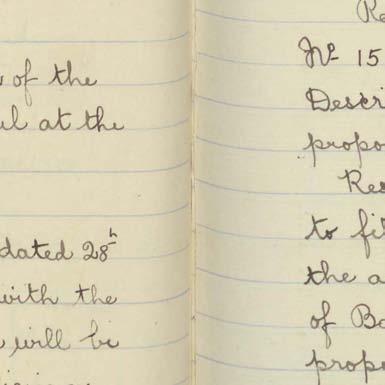 of the
at the
dated 28th
with the
will be
Nº 15
Descri
propo
Res
to fi
the a
of Ba
prope